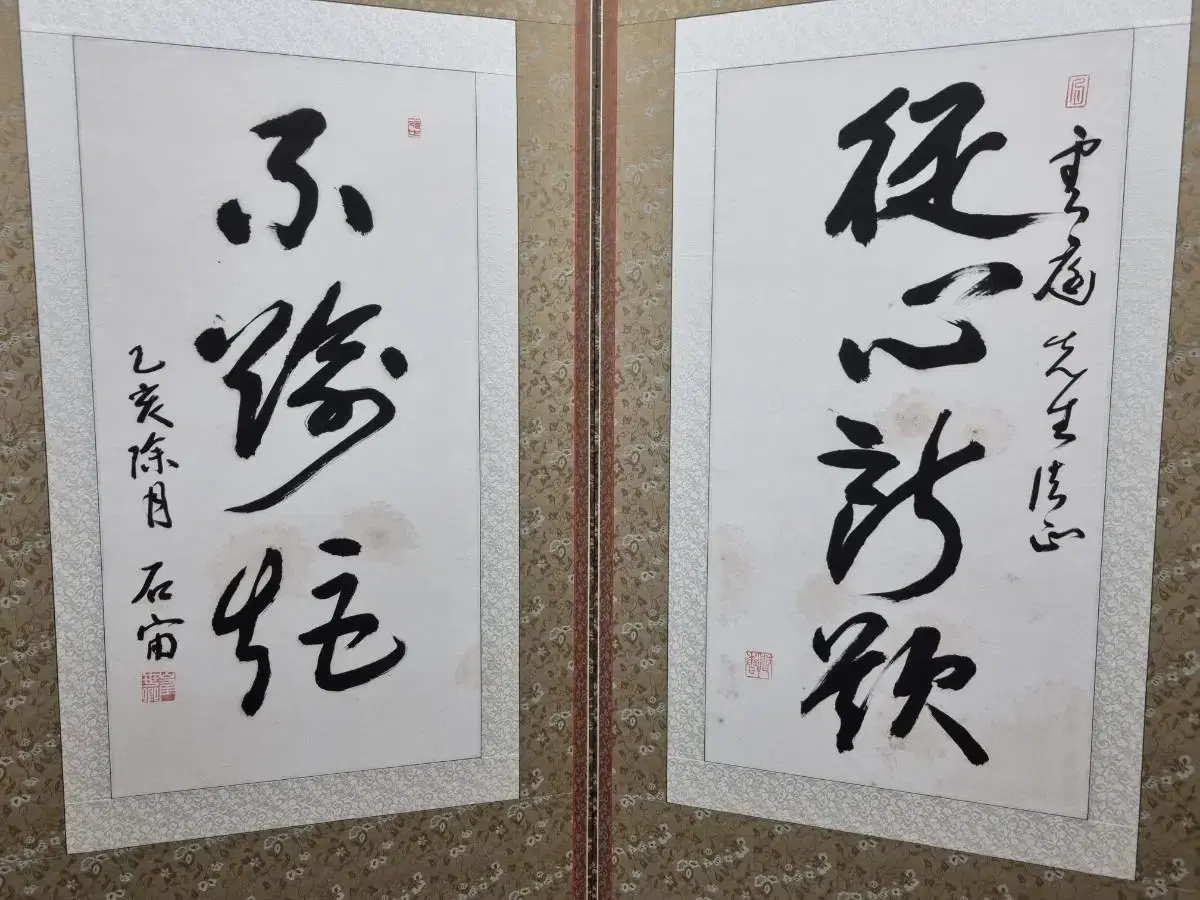 雲庭 先生 法正
從心所欲
不踰矩
乙亥除月 石宙